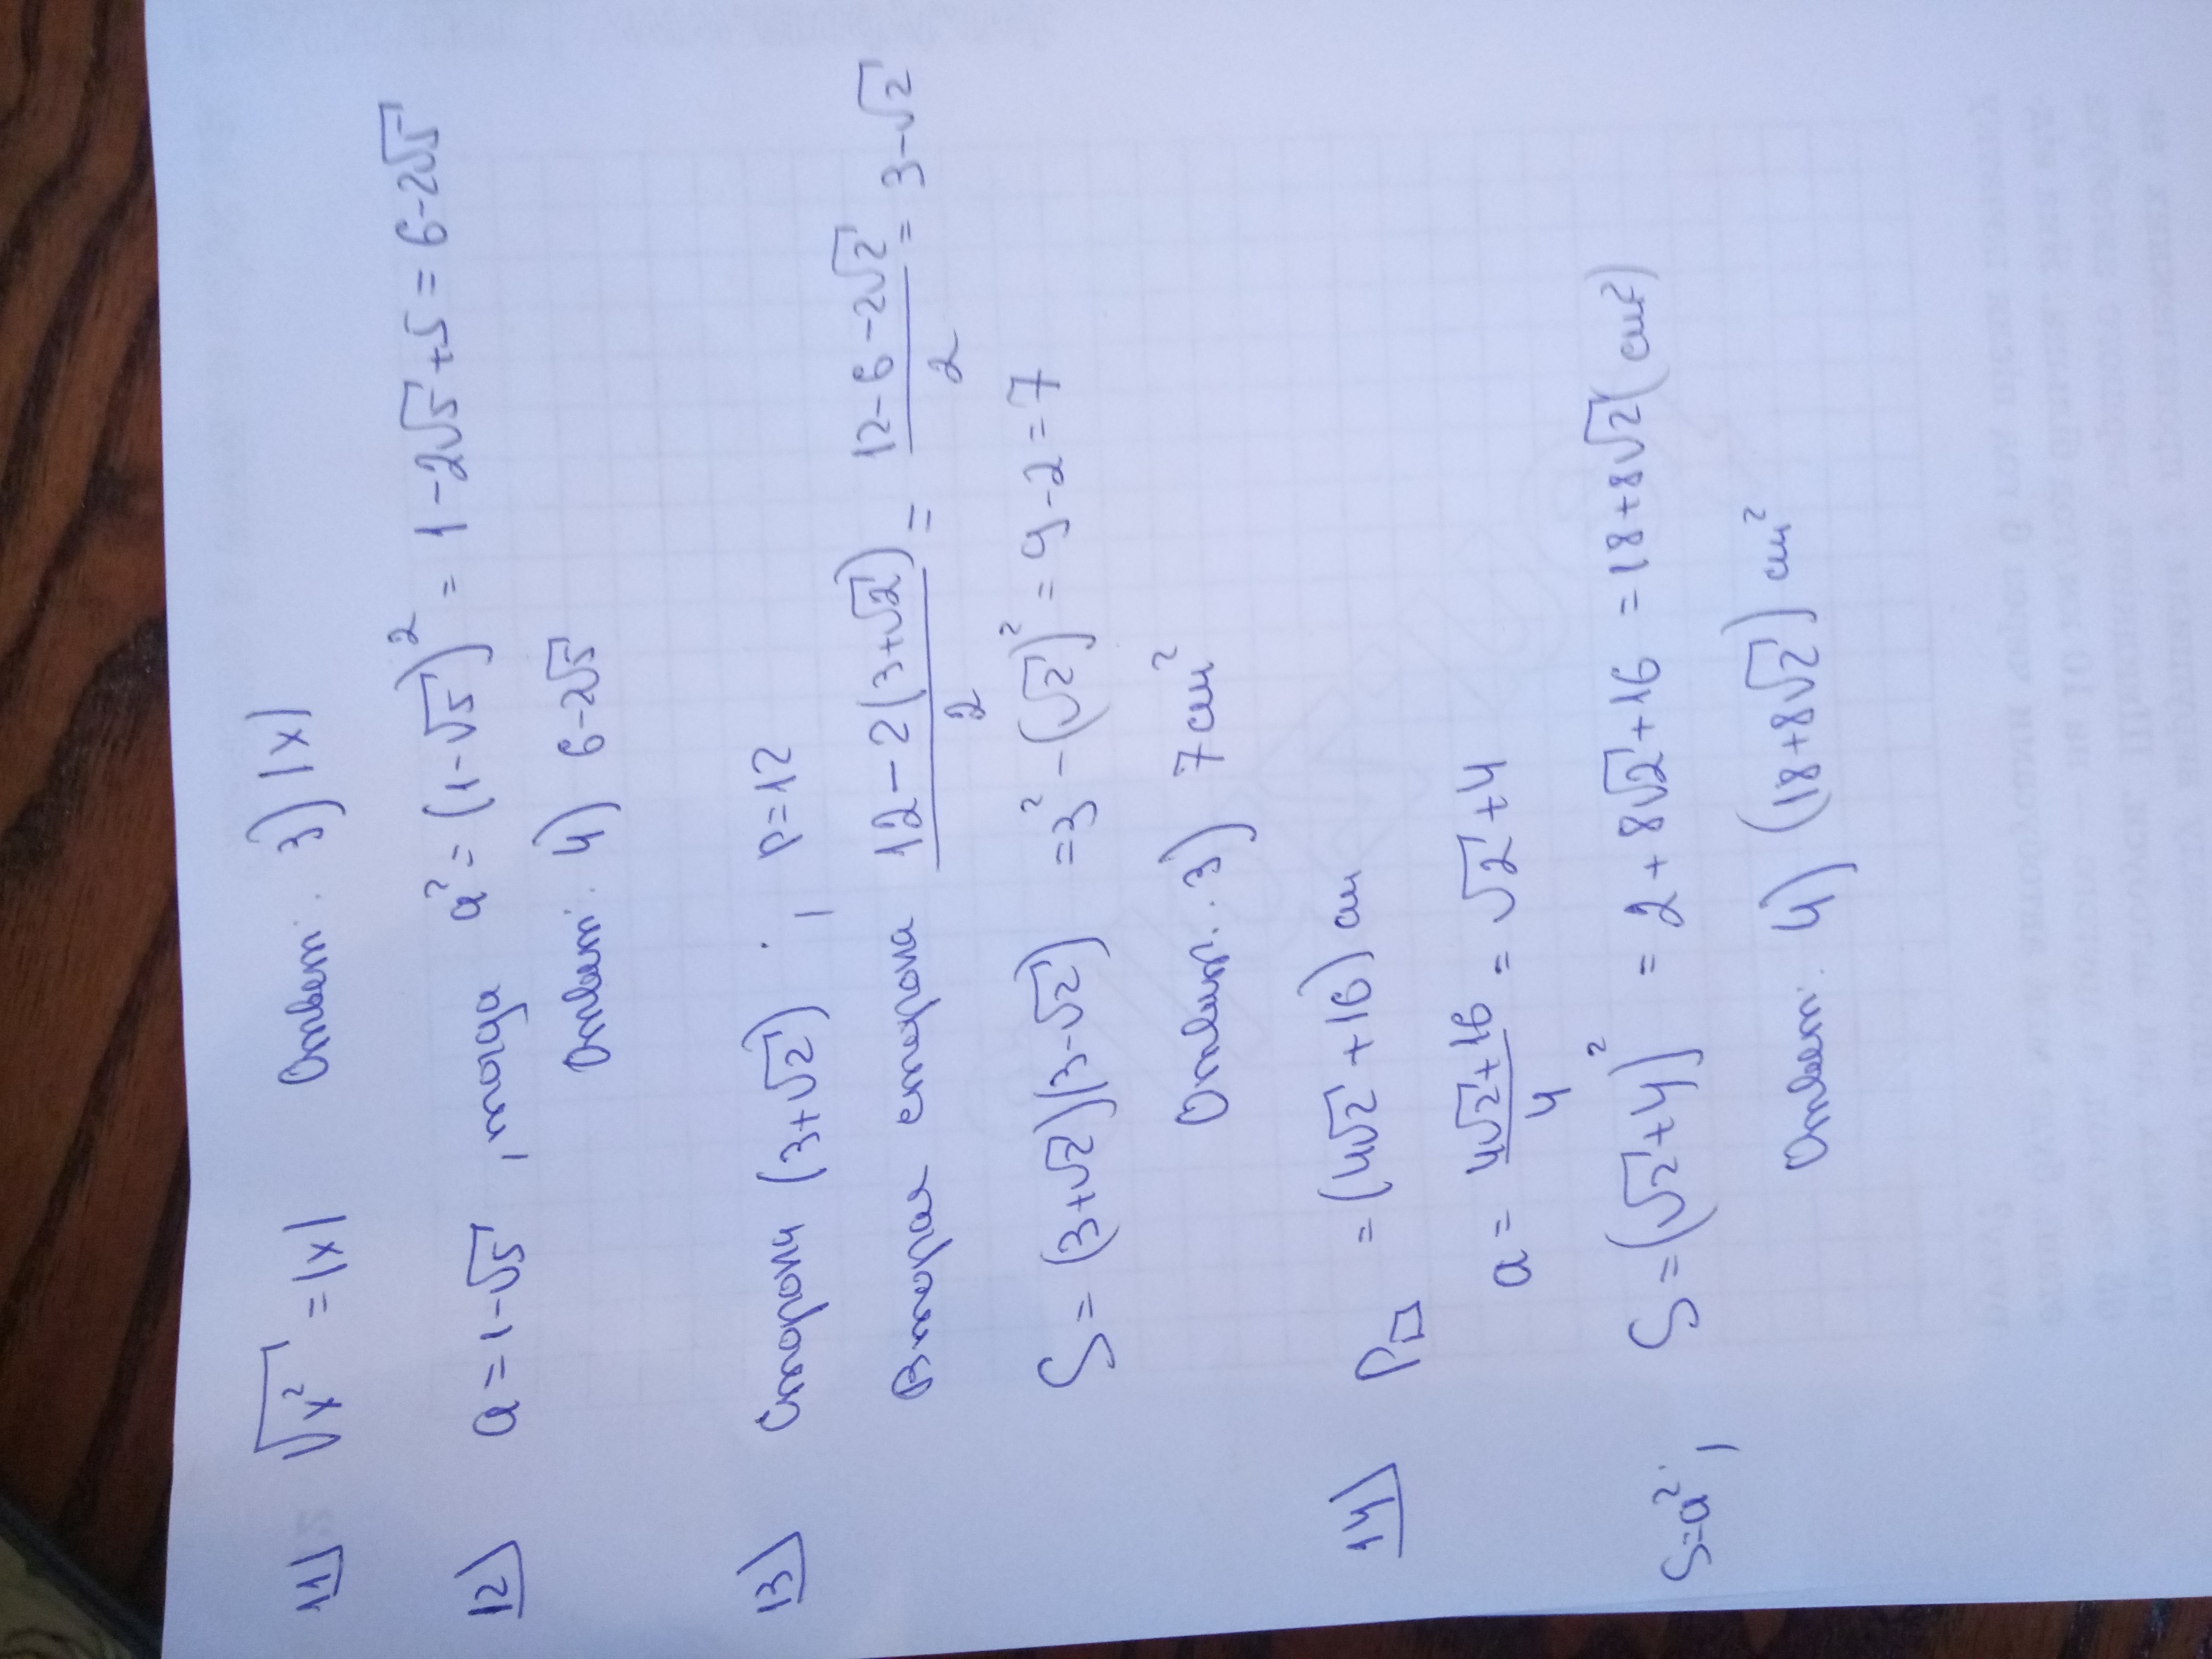 11) √x² = |x| Ответ: 3) |x|
12) a = 1-√5, тогда a² = (1-√5)² = 1-2√5+5 = 6-2√5
Ответ: 4) 6-2√5
13) Сторона (3+√2); P=12
Вторая сторона (12-2(3+√2))/2 = (12-6-2√2)/2 = 3-√2
S = (3+√2)(3-√2) = 3² - (√2)² = 9-2=7
Ответ: 3) 7 см²
14) P□ = (4√2+16) см
a = (4√2+16)/4 = √2+4
S=a²; S=(√2+4)² = 2+8√2+16 = 18+8√2 (см²)
Ответ: 4) (18+8√2) см²